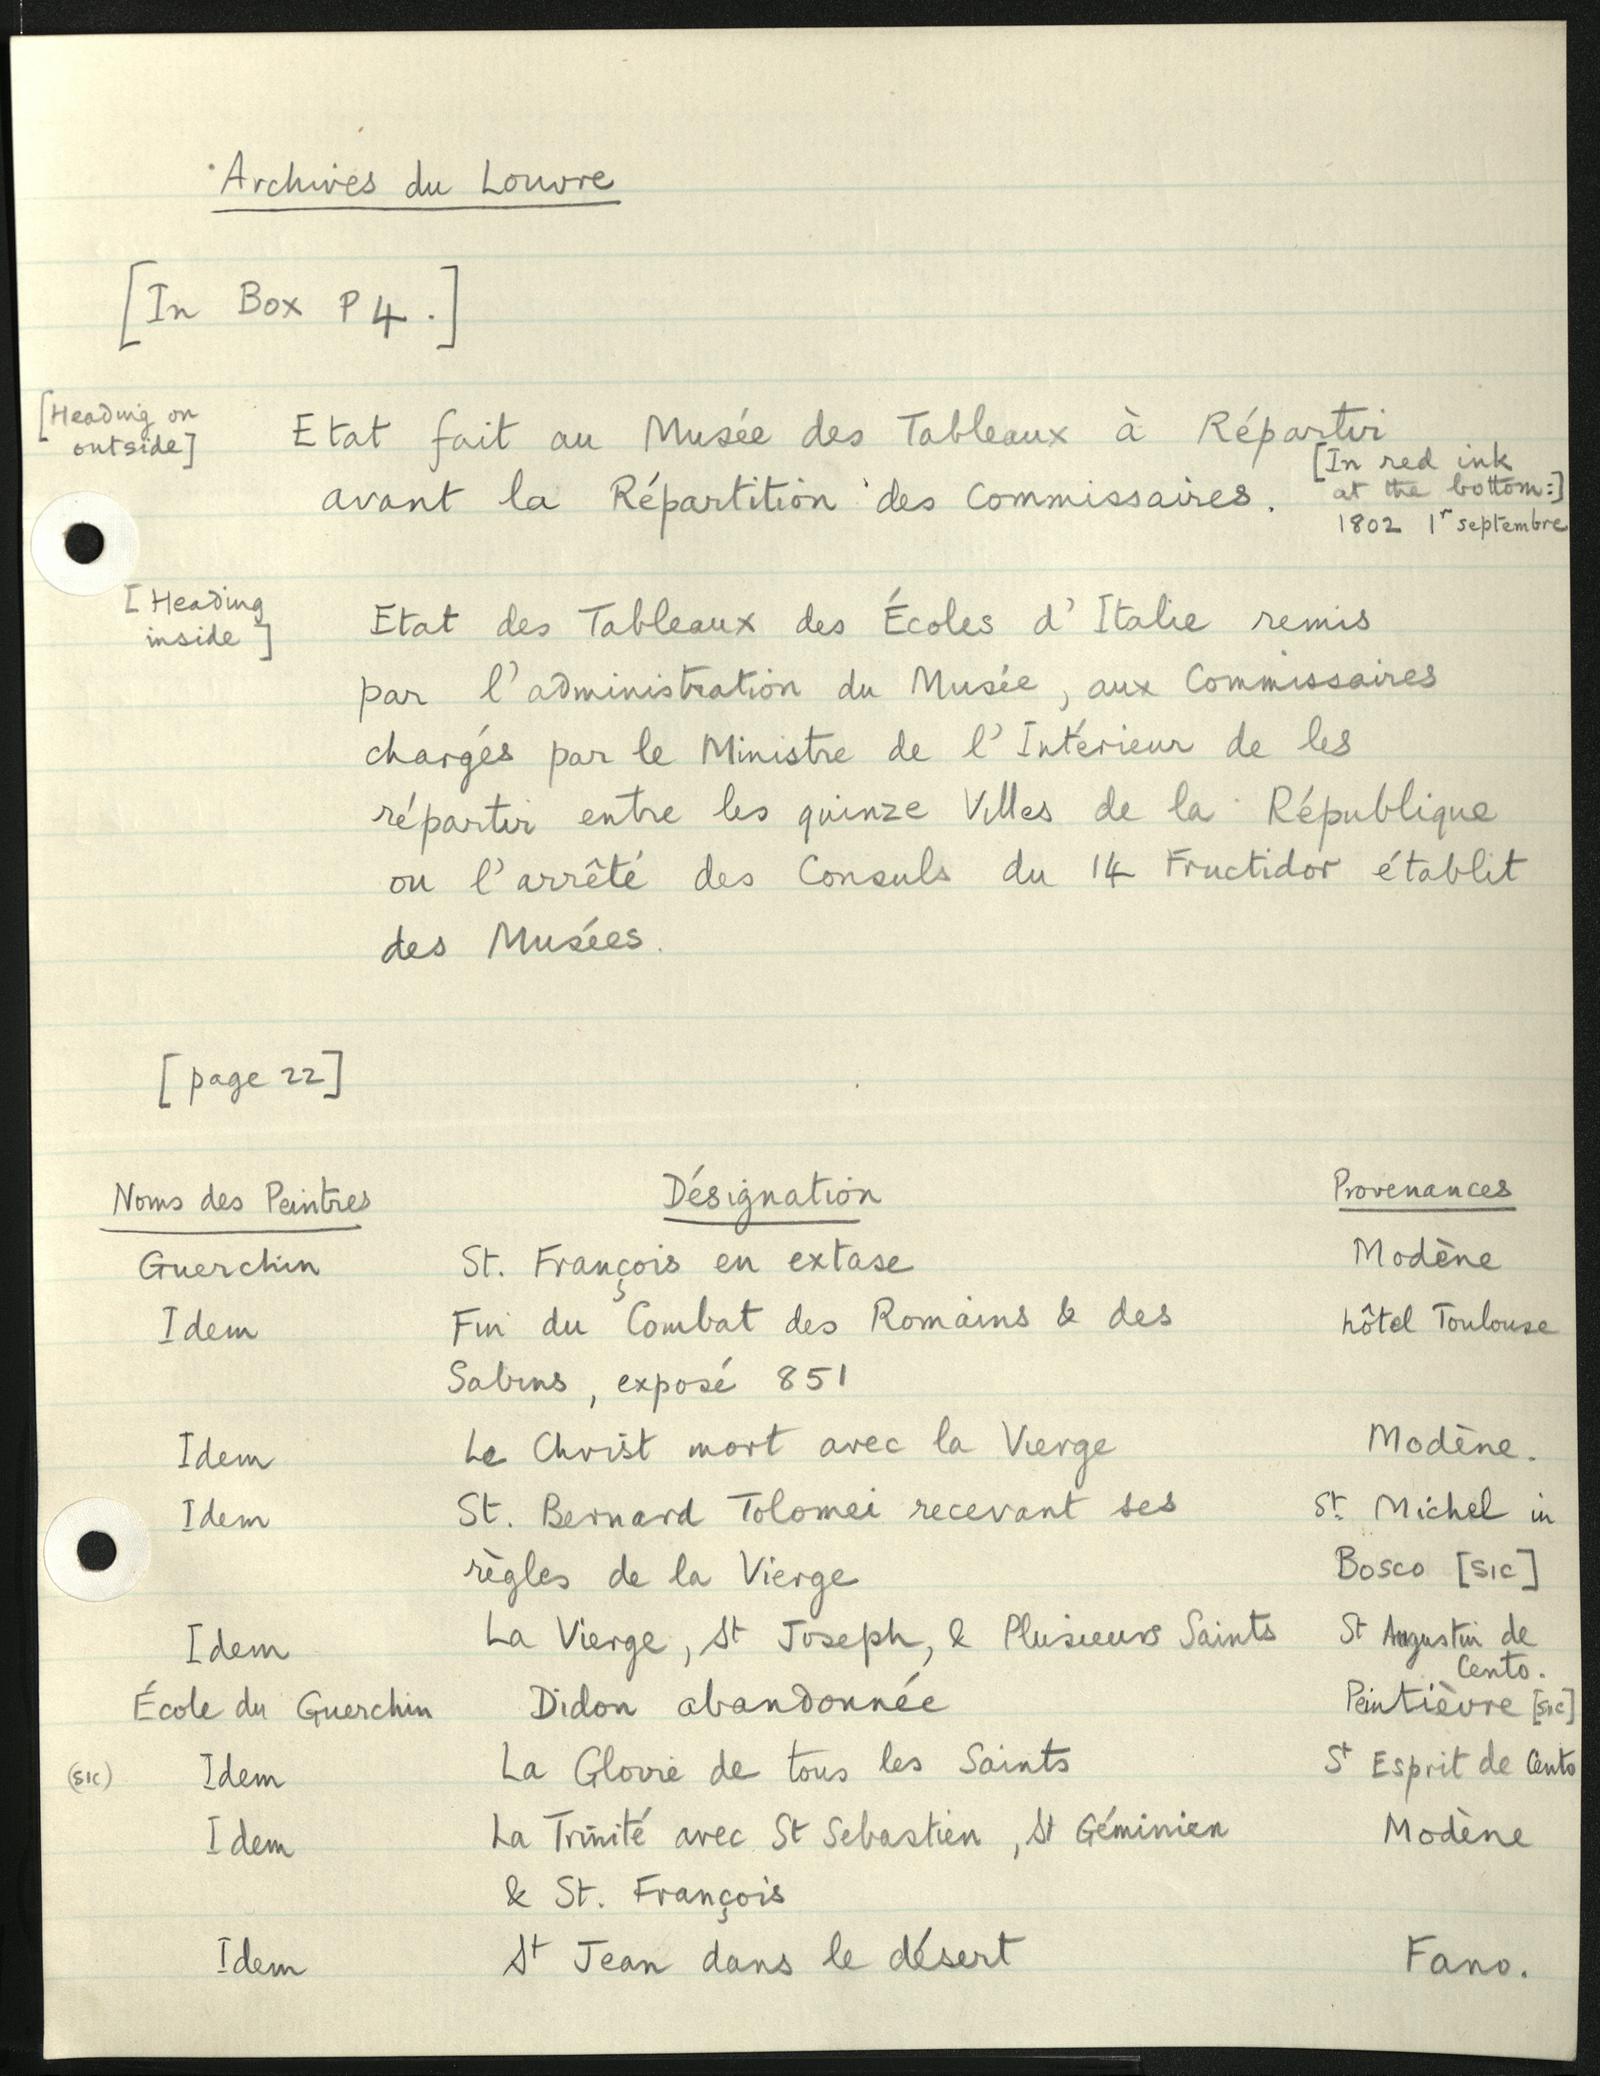 Archives du Louvre
[In Box P 4.]
[Heading on
outside]
Etat fait au Musée des Tableaux à Répartir
avant la Répartition des Commissaires.
[In red ink
at the bottom:]
1802 1r septembre
[Heading
inside]
Etat des Tableaux des Écoles d'Italie remis
par l'administration du Musée, aux Commissaires
chargés par le Ministre de l'Intérieur de les
répartir entre les quinze Villes de la République
ou l'arrêté des Consuls du 14 Fructidor établit
des Musées.
[page 22]
Noms des Peintres Désignation Provenances
Guerchin St. François en extase Modène
Idem Fin du Combat des Romains & des hôtel Toulouse
Sabins, exposé 851
Idem Le Christ mort avec la Vierge Modène.
Idem St. Bernard Tolomei recevant ses St. Michel in
règles de la Vierge Bosco [sic]
Idem La Vierge, St Joseph, & Plusieurs Saints St Augustin de
Cento.
École du Guerchin Didon abandonnée Peintièvre [sic]
(sic) Idem La Gloire de tous les Saints St Esprit de Cento
Idem La Trinité avec St Sebastien, St Géminien Modène
& St. François
Idem St Jean dans le désert Fano.